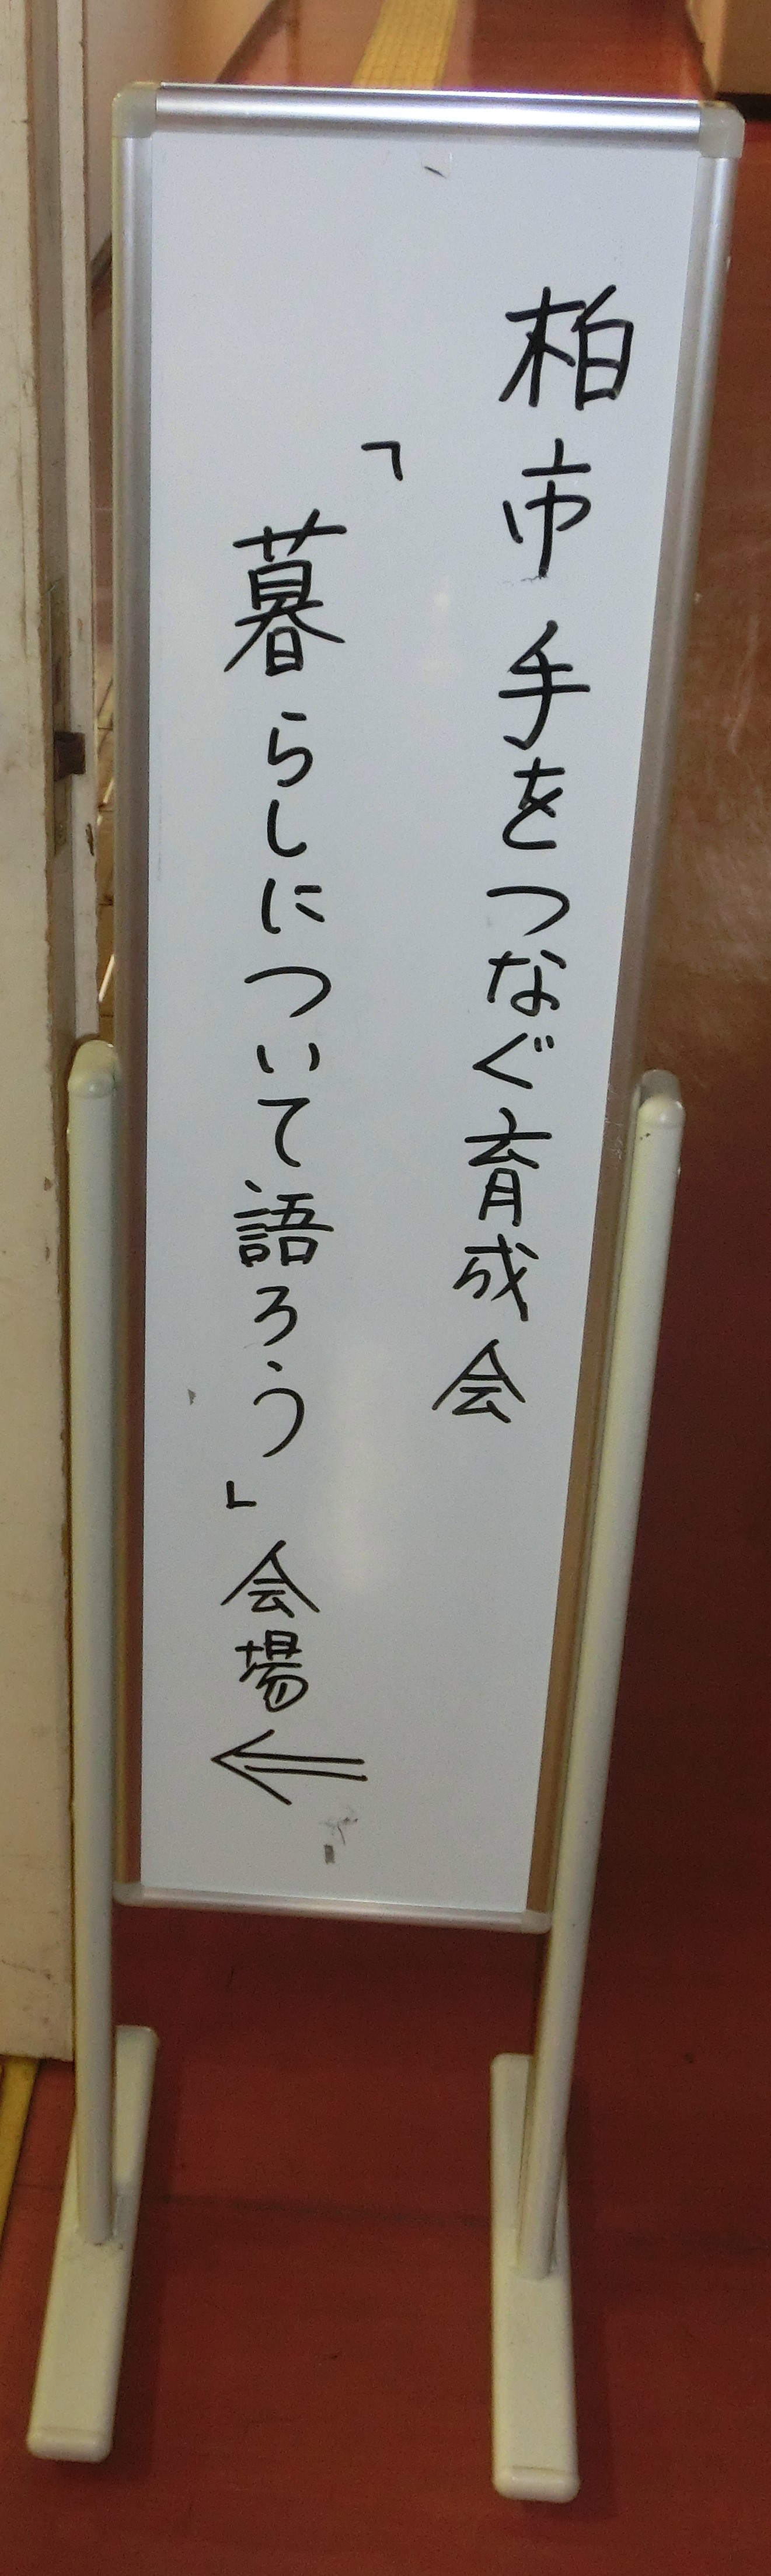 柏市手をつなぐ育成会
「暮らしについて語ろう」会場